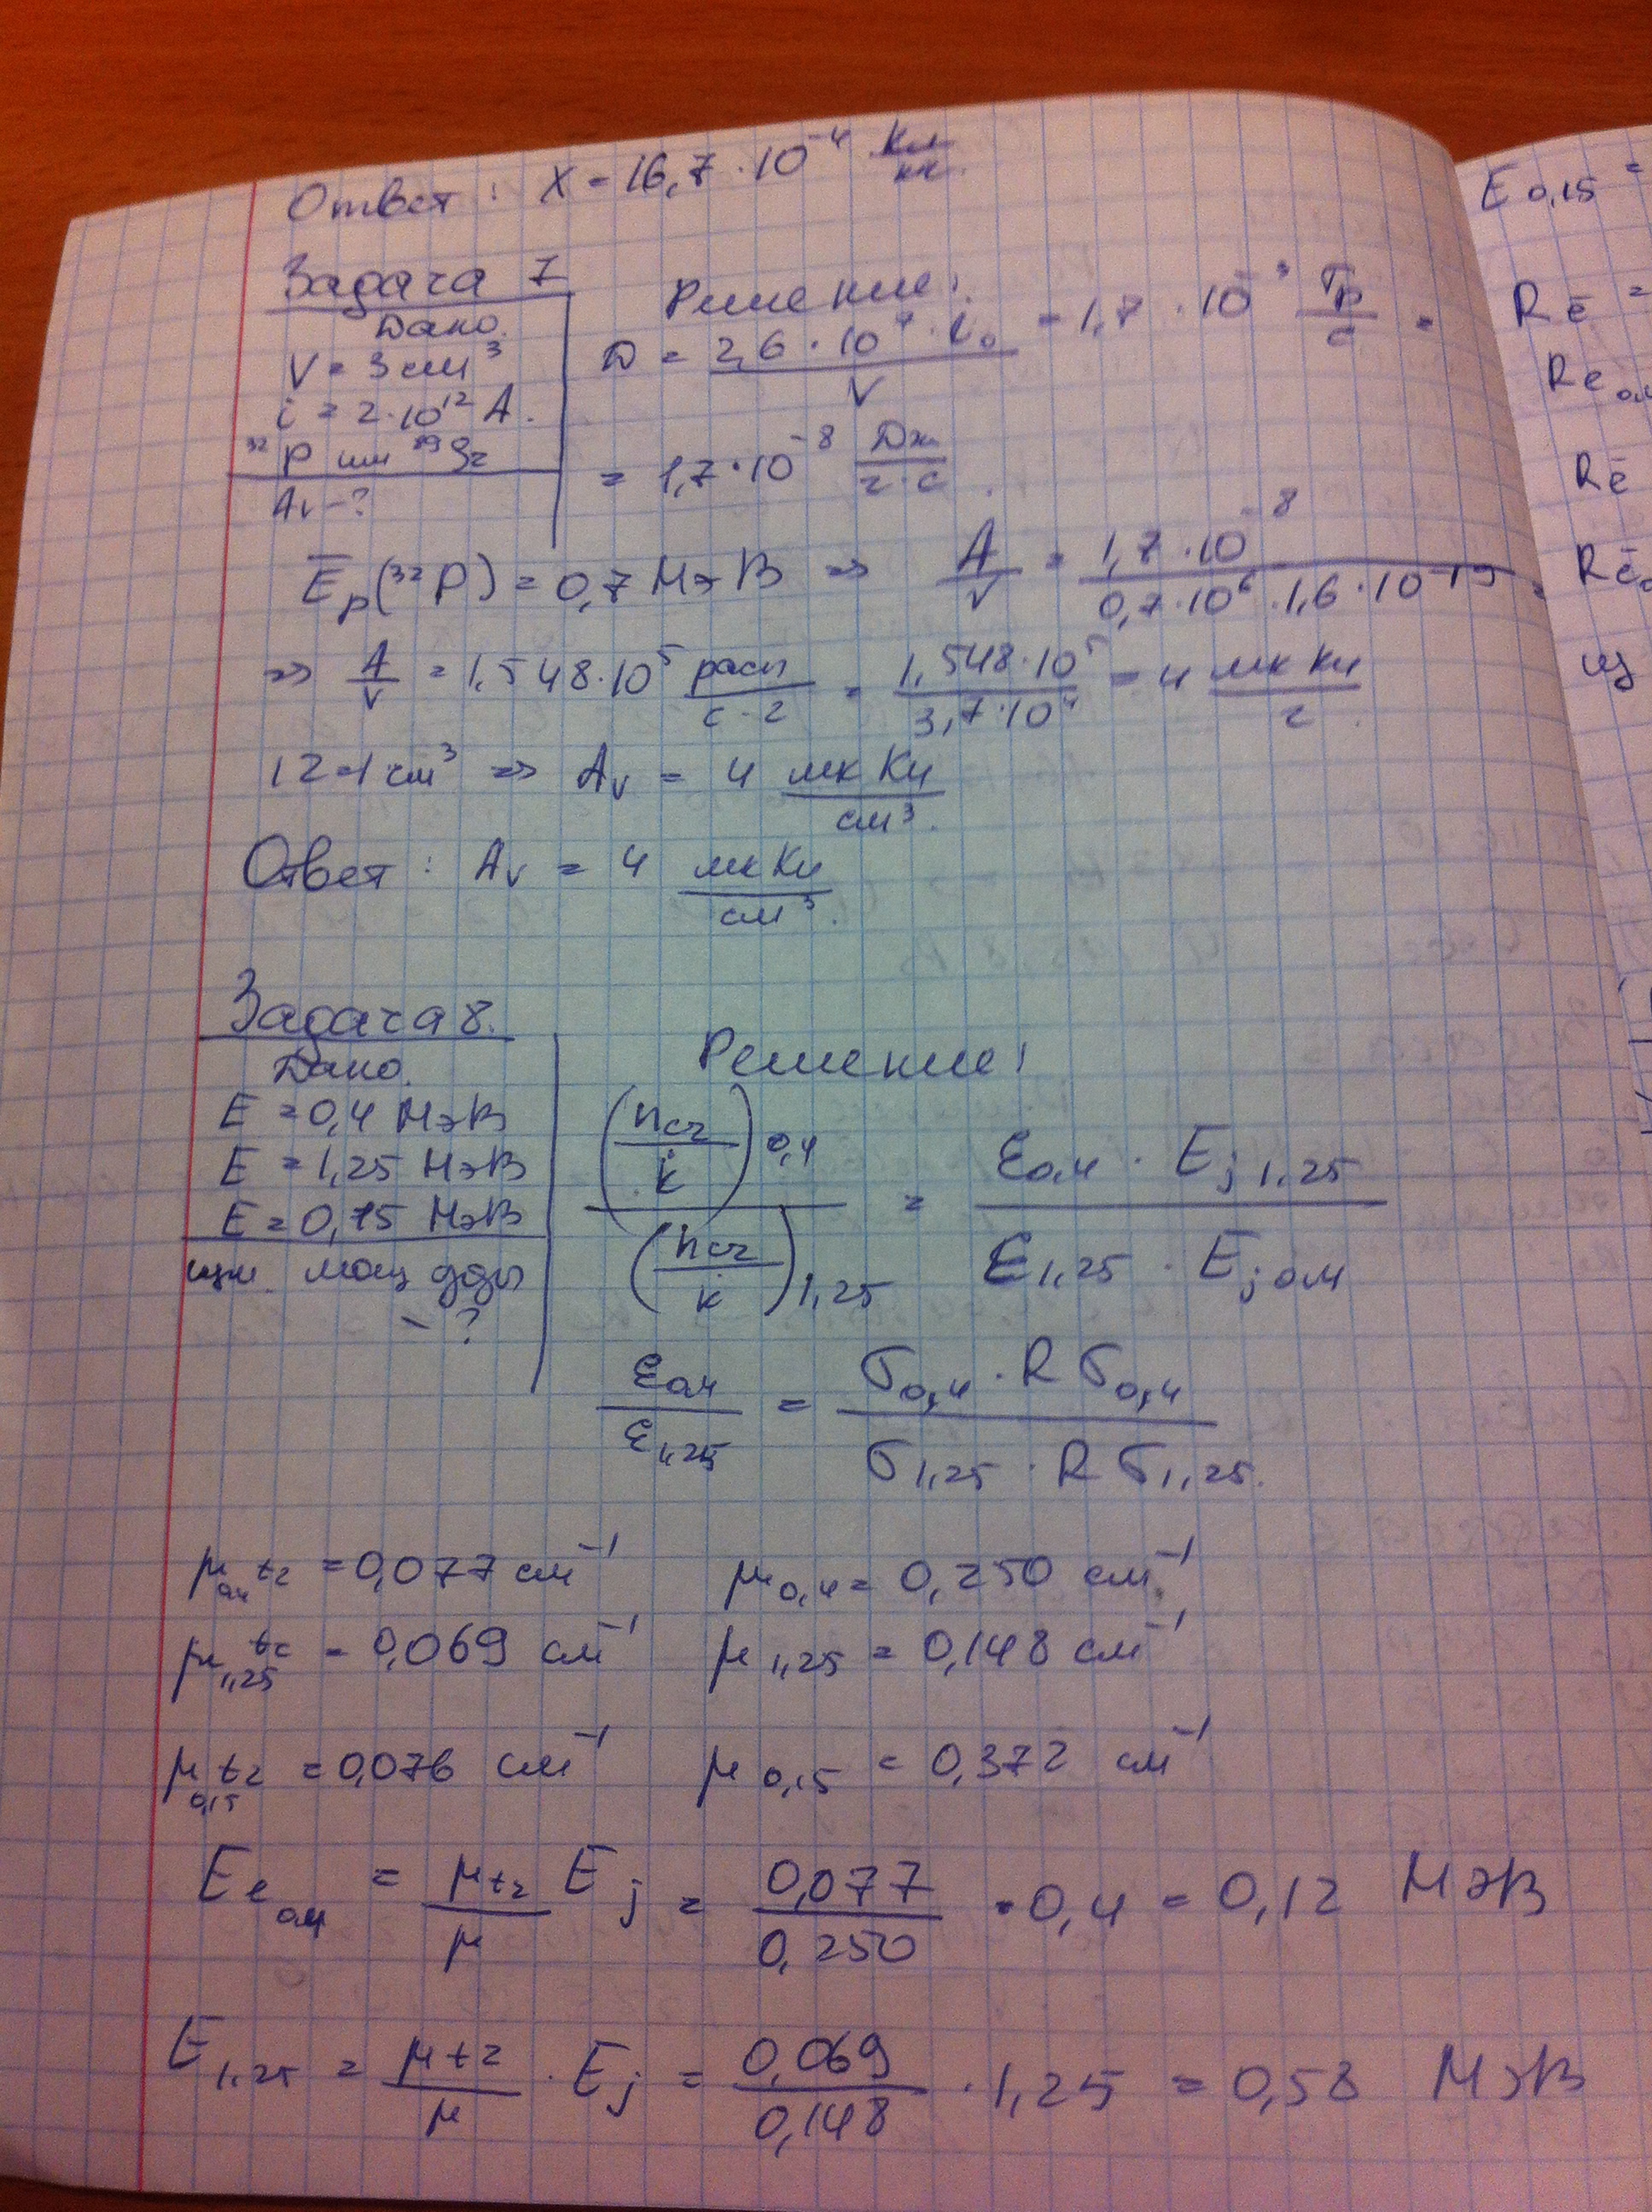 Ответ: X = 16,7 · 10⁻⁴ Кл/кг.
Задача 7
Дано.
V = 3 см³
i = 2·10¹² А.
³²P или ⁸⁹Sr
Av - ?
Решение:
D = 2,6 · 10⁴ · i₀ / V = 1,7 · 10⁻³ Гр/с =
= 1,7 · 10⁻⁸ Дж/г·с.
E̅β(³²P) = 0,7 МэВ => A/V = 1,7 · 10⁻⁸ / 0,7·10⁶ · 1,6·10⁻¹⁹
=> A/V = 1,548·10⁵ расп/с·г = 1,548·10⁵ / 3,7·10⁴ = 4 мкКи/г.
1г=1см³ => Av = 4 мкКи/см³.
Ответ: Av = 4 мкКи/см³.
Задача 8.
Дано.
E = 0,4 МэВ
E = 1,25 МэВ
E = 0,15 МэВ
изм. мощ дозы
- ?
Решение:
(nсч/k)0,4 / (nсч/k)1,25 = ε0,4 · Ej 1,25 / ε1,25 · Ej 0,4
ε0,4 / ε1,25 = σ0,4 · Rσ0,4 / σ1,25 · Rσ1,25.
μ0,4 tz = 0,077 см⁻¹ μ0,4 = 0,250 см⁻¹
μ1,25 tz = 0,069 см⁻¹ μ1,25 = 0,148 см⁻¹
μ0,15 tz = 0,076 см⁻¹ μ0,15 = 0,372 см⁻¹
Ee0,4 = μtz/μ Ej = 0,077/0,250 · 0,4 = 0,12 МэВ
E1,25 = μtz/μ · Ej = 0,069/0,148 · 1,25 = 0,58 МэВ
E0,15 =
Rē =
Re0,4
Rē
Rē
из